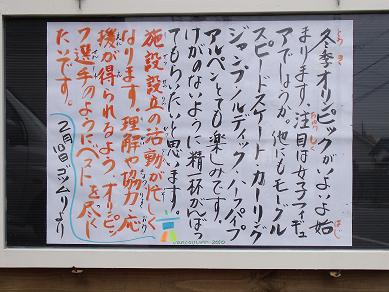 冬季オリンピックがいよいよ始
まります。注目は女子フィギュ
アでしょうか。他にもモーグル
スピードスケート カーリング
ジャンプ ノルディック ハーフパイプ
アルペンとても楽しみです。
けがのないように精一杯がんばっ
てもらいたいと思います。
施設設立の活動が忙しく
なります。理解や協力、応
援が得られるよう オリンピッ
ク選手のようにベストを尽くし
たいです。
2月10日 ゴツムリより
VANCOUVER 2010